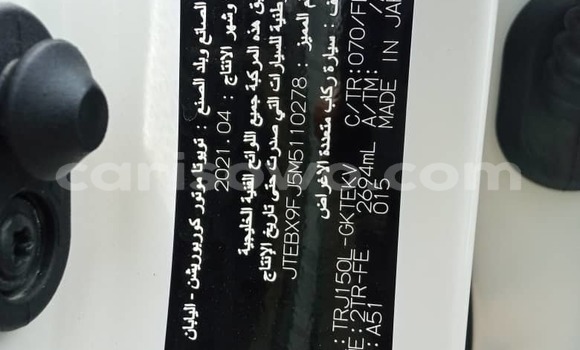 الصانع وبلد الصنع : تويوتا موتور كوربوريشن - اليابان
وشهر الانتاج : 2021.04
هذه المركبة جميع اللوائح الفنية الخليجية
للسيارات التي صدرت حتى تاريخ الإنتاج
المميز : JTEBX9FJ5M5110278
: سيارة ركاب متعددة الاغراض
: TRJ150L-GKTEKV C/TR:070/F
E: 2TR-FE 2694mL A/TM:
: A51 015 MADE IN JA